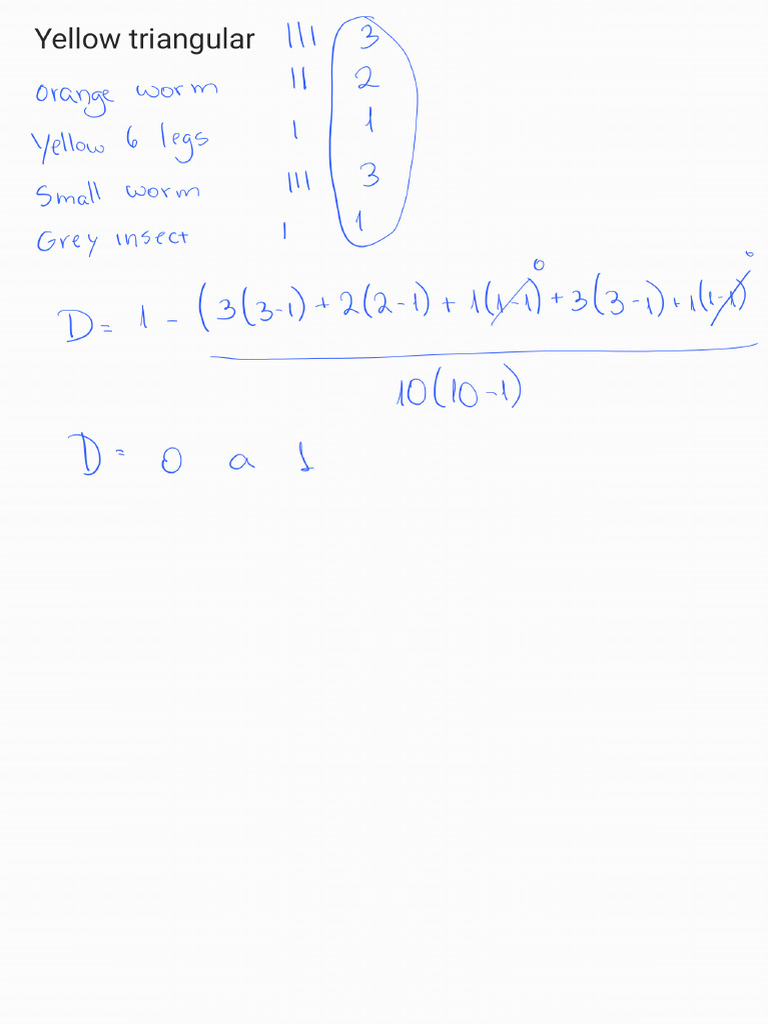 Yellow triangular III 3
orange worm II 2
Yellow 6 legs I 1
Small worm III 3
Grey insect I 1
D = 1 - (3(3-1) + 2(2-1) + 1(1-1) 0 + 3(3-1) + 1(1-1) 0
10(10-1)
D = 0 a 1